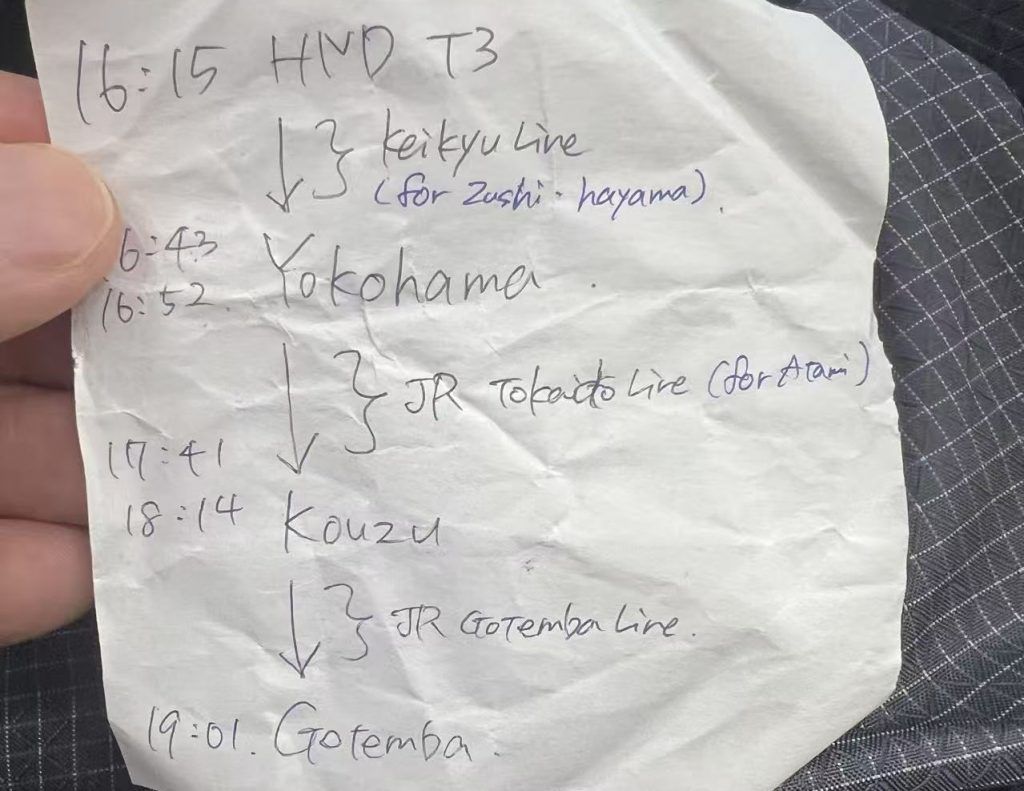 16:15 HND T3
Keikyu Line
(for Zushi・hayama).
6:43
16:52. Yokohama.
JR Tokaido Line (for Atami)
17:41
18:14 Kouzu
JR Gotemba Line.
19:01. Gotemba.